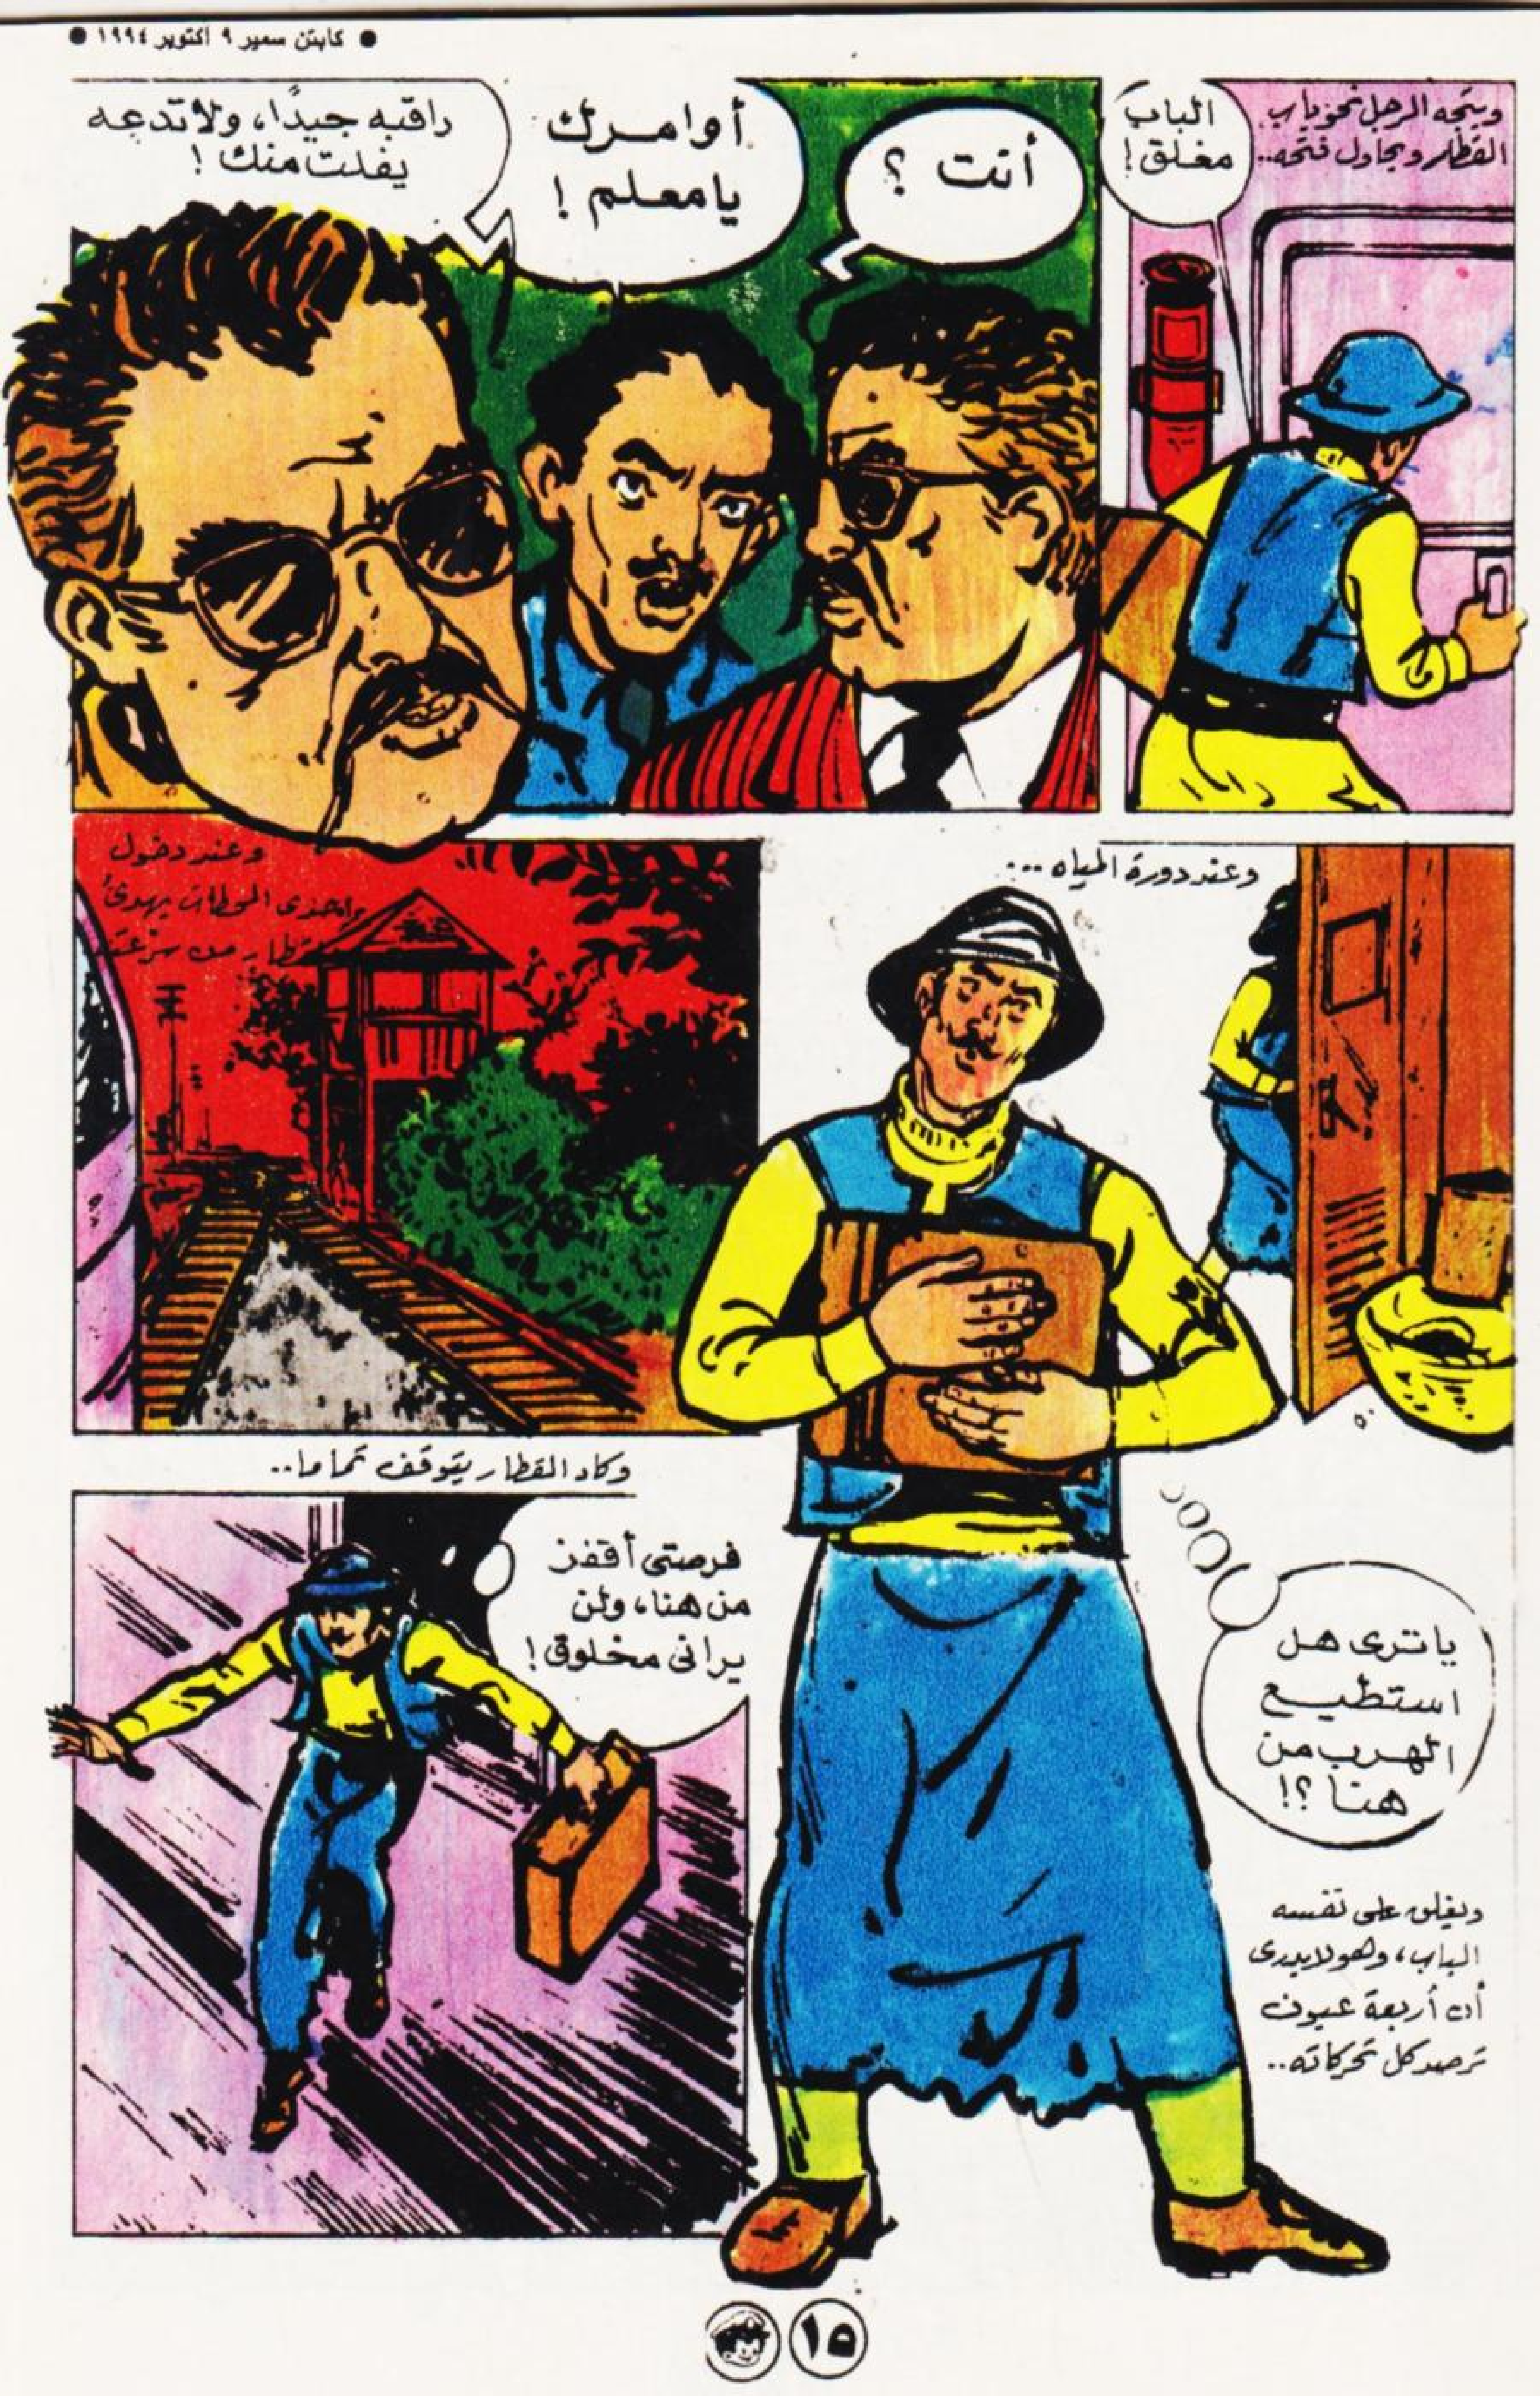 ● كابتن سمير ٩ اكتوبر ١٩٩٤ ●
ويتجه الرجل نحو باب
القطار ويحاول فتحه..
الباب
مغلق !
أنت ؟
أوامرك
يا معلم !
راقبه جيدًا، ولا تدعه
يفلت منك !
وعند دورة المياه ...
يا ترى هل
استطيع
الهرب من
هنا ؟!
ويغلق على نفسه
الباب، وهو لا يدرى
أن أربعة عيون
ترصد كل تحركاته..
وعند دخول
إحدى المحطات يهدئ
من سرعته
وكاد القطار يتوقف تماما..
فرصتى أقفز
من هنا، ولن
يرانى مخلوق !
١٥